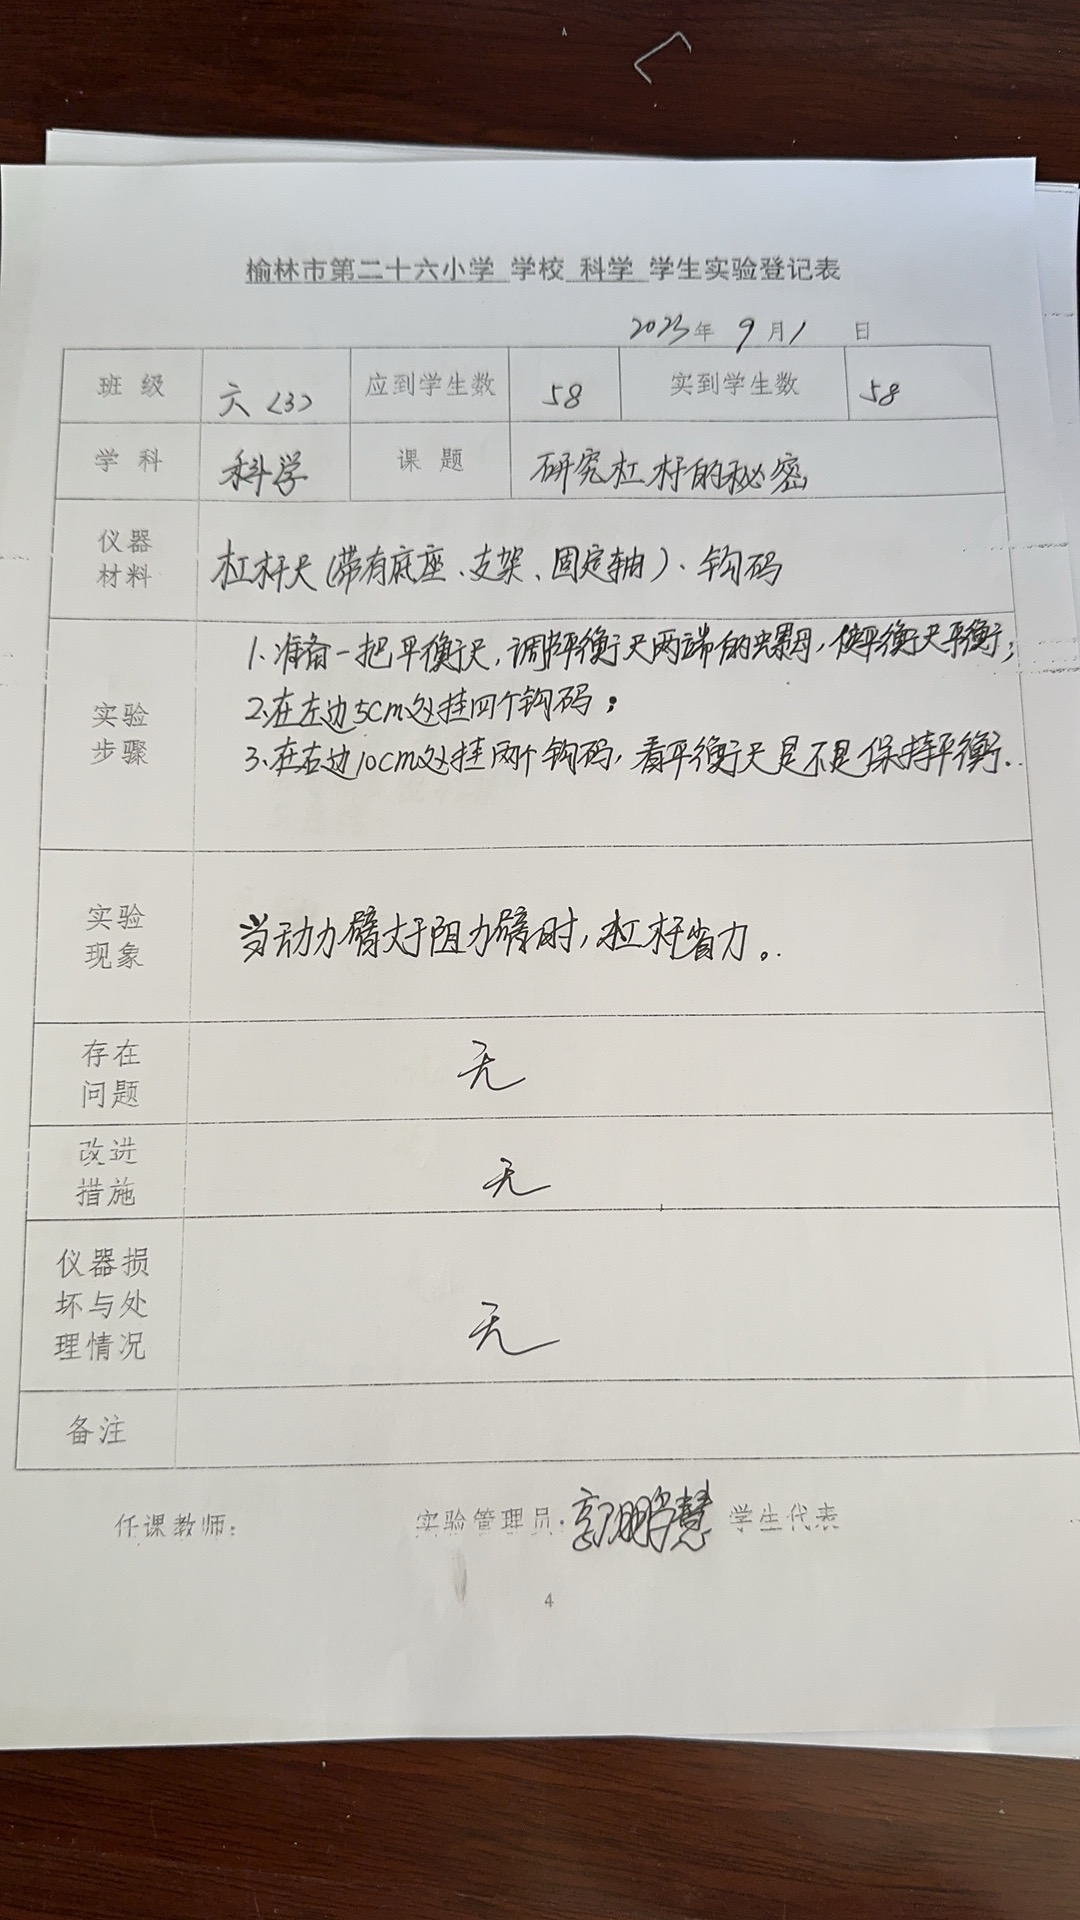 榆林市第二十六小学 学校 科学 学生实验登记表
2023年 9月1 日
班 级 六(3) 应到学生数 58 实到学生数 58
学 科 科学 课 题 研究杠杆的秘密
仪器
材料
杠杆尺(带有底座、支架、固定轴)、钩码
实验
步骤
1、准备一把平衡尺,调节平衡尺两端的螺母,使平衡尺平衡;
2、在左边5cm处挂四个钩码;
3、在右边10cm处挂两个钩码,看平衡尺是不是保持平衡.
实验
现象
当动力臂大于阻力臂时,杠杆省力。
存在
问题
无
改进
措施
无
仪器损
坏与处
理情况
无
备注
任课教师: 实验管理员: 郭鹏慧 学生代表
4